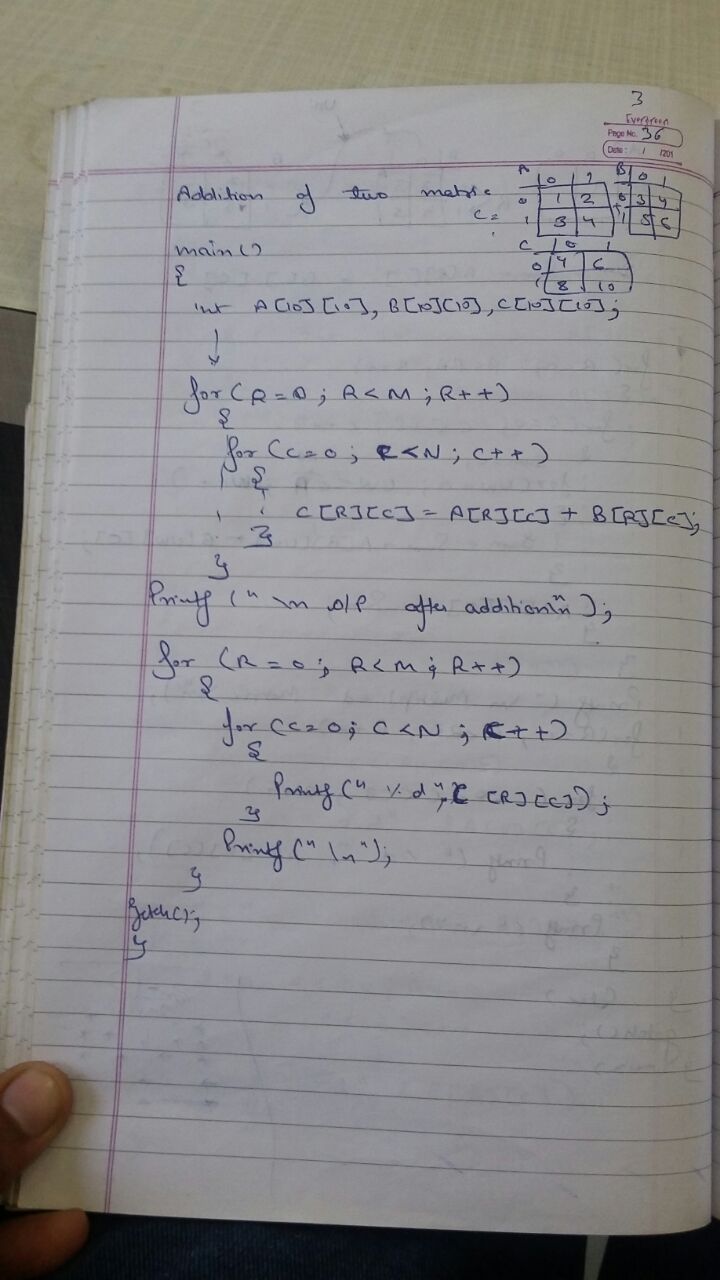 3
Evergreen
Page No. 36
Date: / /201
Addition of two metric
A 0 1
0 1 2
1 3 4
+
B 0 1
0 3 4
1 5 6
C =
C 0 1
0 4 6
1 8 10
main()
{
int A[10][10], B[10][10], C[10][10];
↓
for(R=0; R<M; R++)
{
for(C=0; C<N; C++)
{
C[R][C] = A[R][C] + B[R][C];
}
}
Printf (" \n O/P after addition\n");
for (R=0; R<M; R++)
{
for(C=0; C<N; C++)
{
Printf (" %d", C [R][C]);
}
Printf (" \n");
}
getch();
}